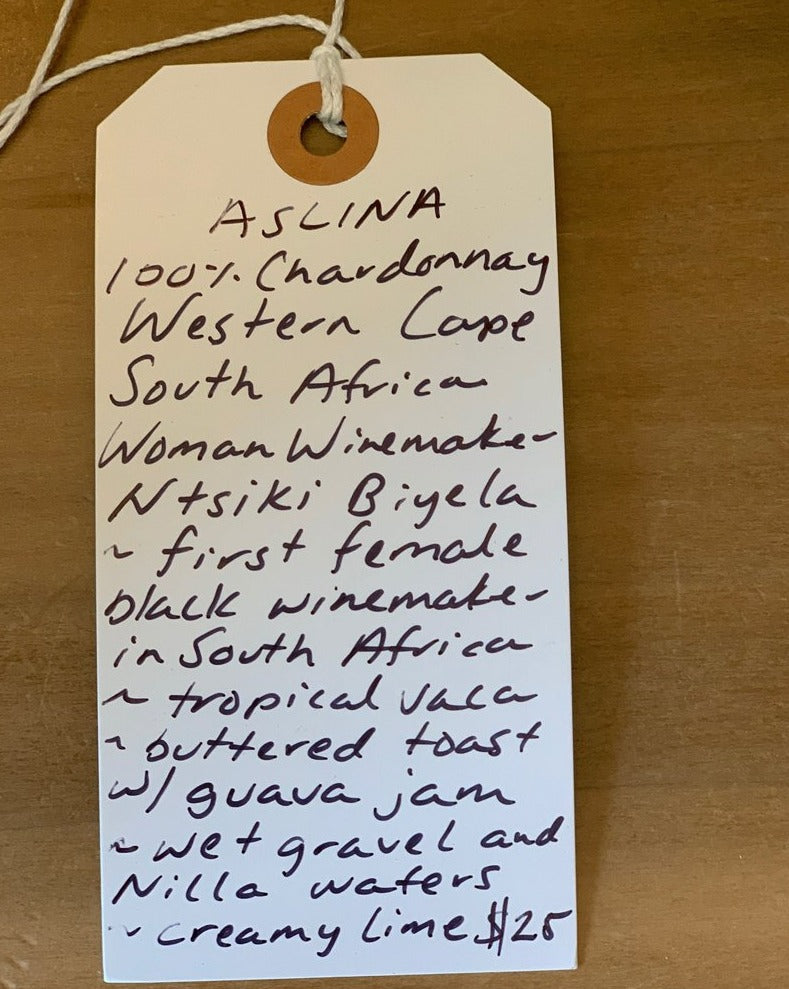 ASLINA
100% Chardonnay
Western Cape
South Africa
Woman Winemaker
Ntsiki Biyela
~ first female
black winemaker
in South Africa
~ tropical vaca
~ buttered toast
w/ guava jam
~ wet gravel and
Nilla wafers
~ creamy lime $25